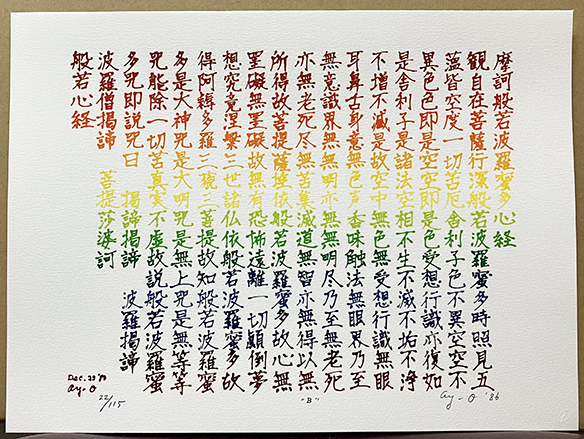 摩訶般若波羅蜜多心経
観自在菩薩行深般若波羅蜜多時照見五
蘊皆空度一切苦厄舎利子色不異空空不
異色色即是空空即是色受想行識亦復如
是舎利子是諸法空相不生不滅不垢不浄
不増不減是故空中無色無受想行識無眼
耳鼻舌身意無色声香味触法無眼界乃至
無意識界無無明亦無無明尽乃至無老死
亦無老死尽無苦集滅道無智亦無得以無
所得故菩提薩埵依般若波羅蜜多故心無
罣礙無罣礙故無有恐怖遠離一切顛倒夢
想究竟涅槃三世諸仏依般若波羅蜜多故
得阿耨多羅三藐三菩提故知般若波羅蜜
多是大神咒是大明咒是無上咒是無等等
咒能除一切苦真実不虚故説般若波羅蜜
多咒即説咒曰 掲諦掲諦 波羅掲諦
波羅僧掲諦 菩提莎婆訶
般若心経
ay-O
22/115
"B"
ay-O '86